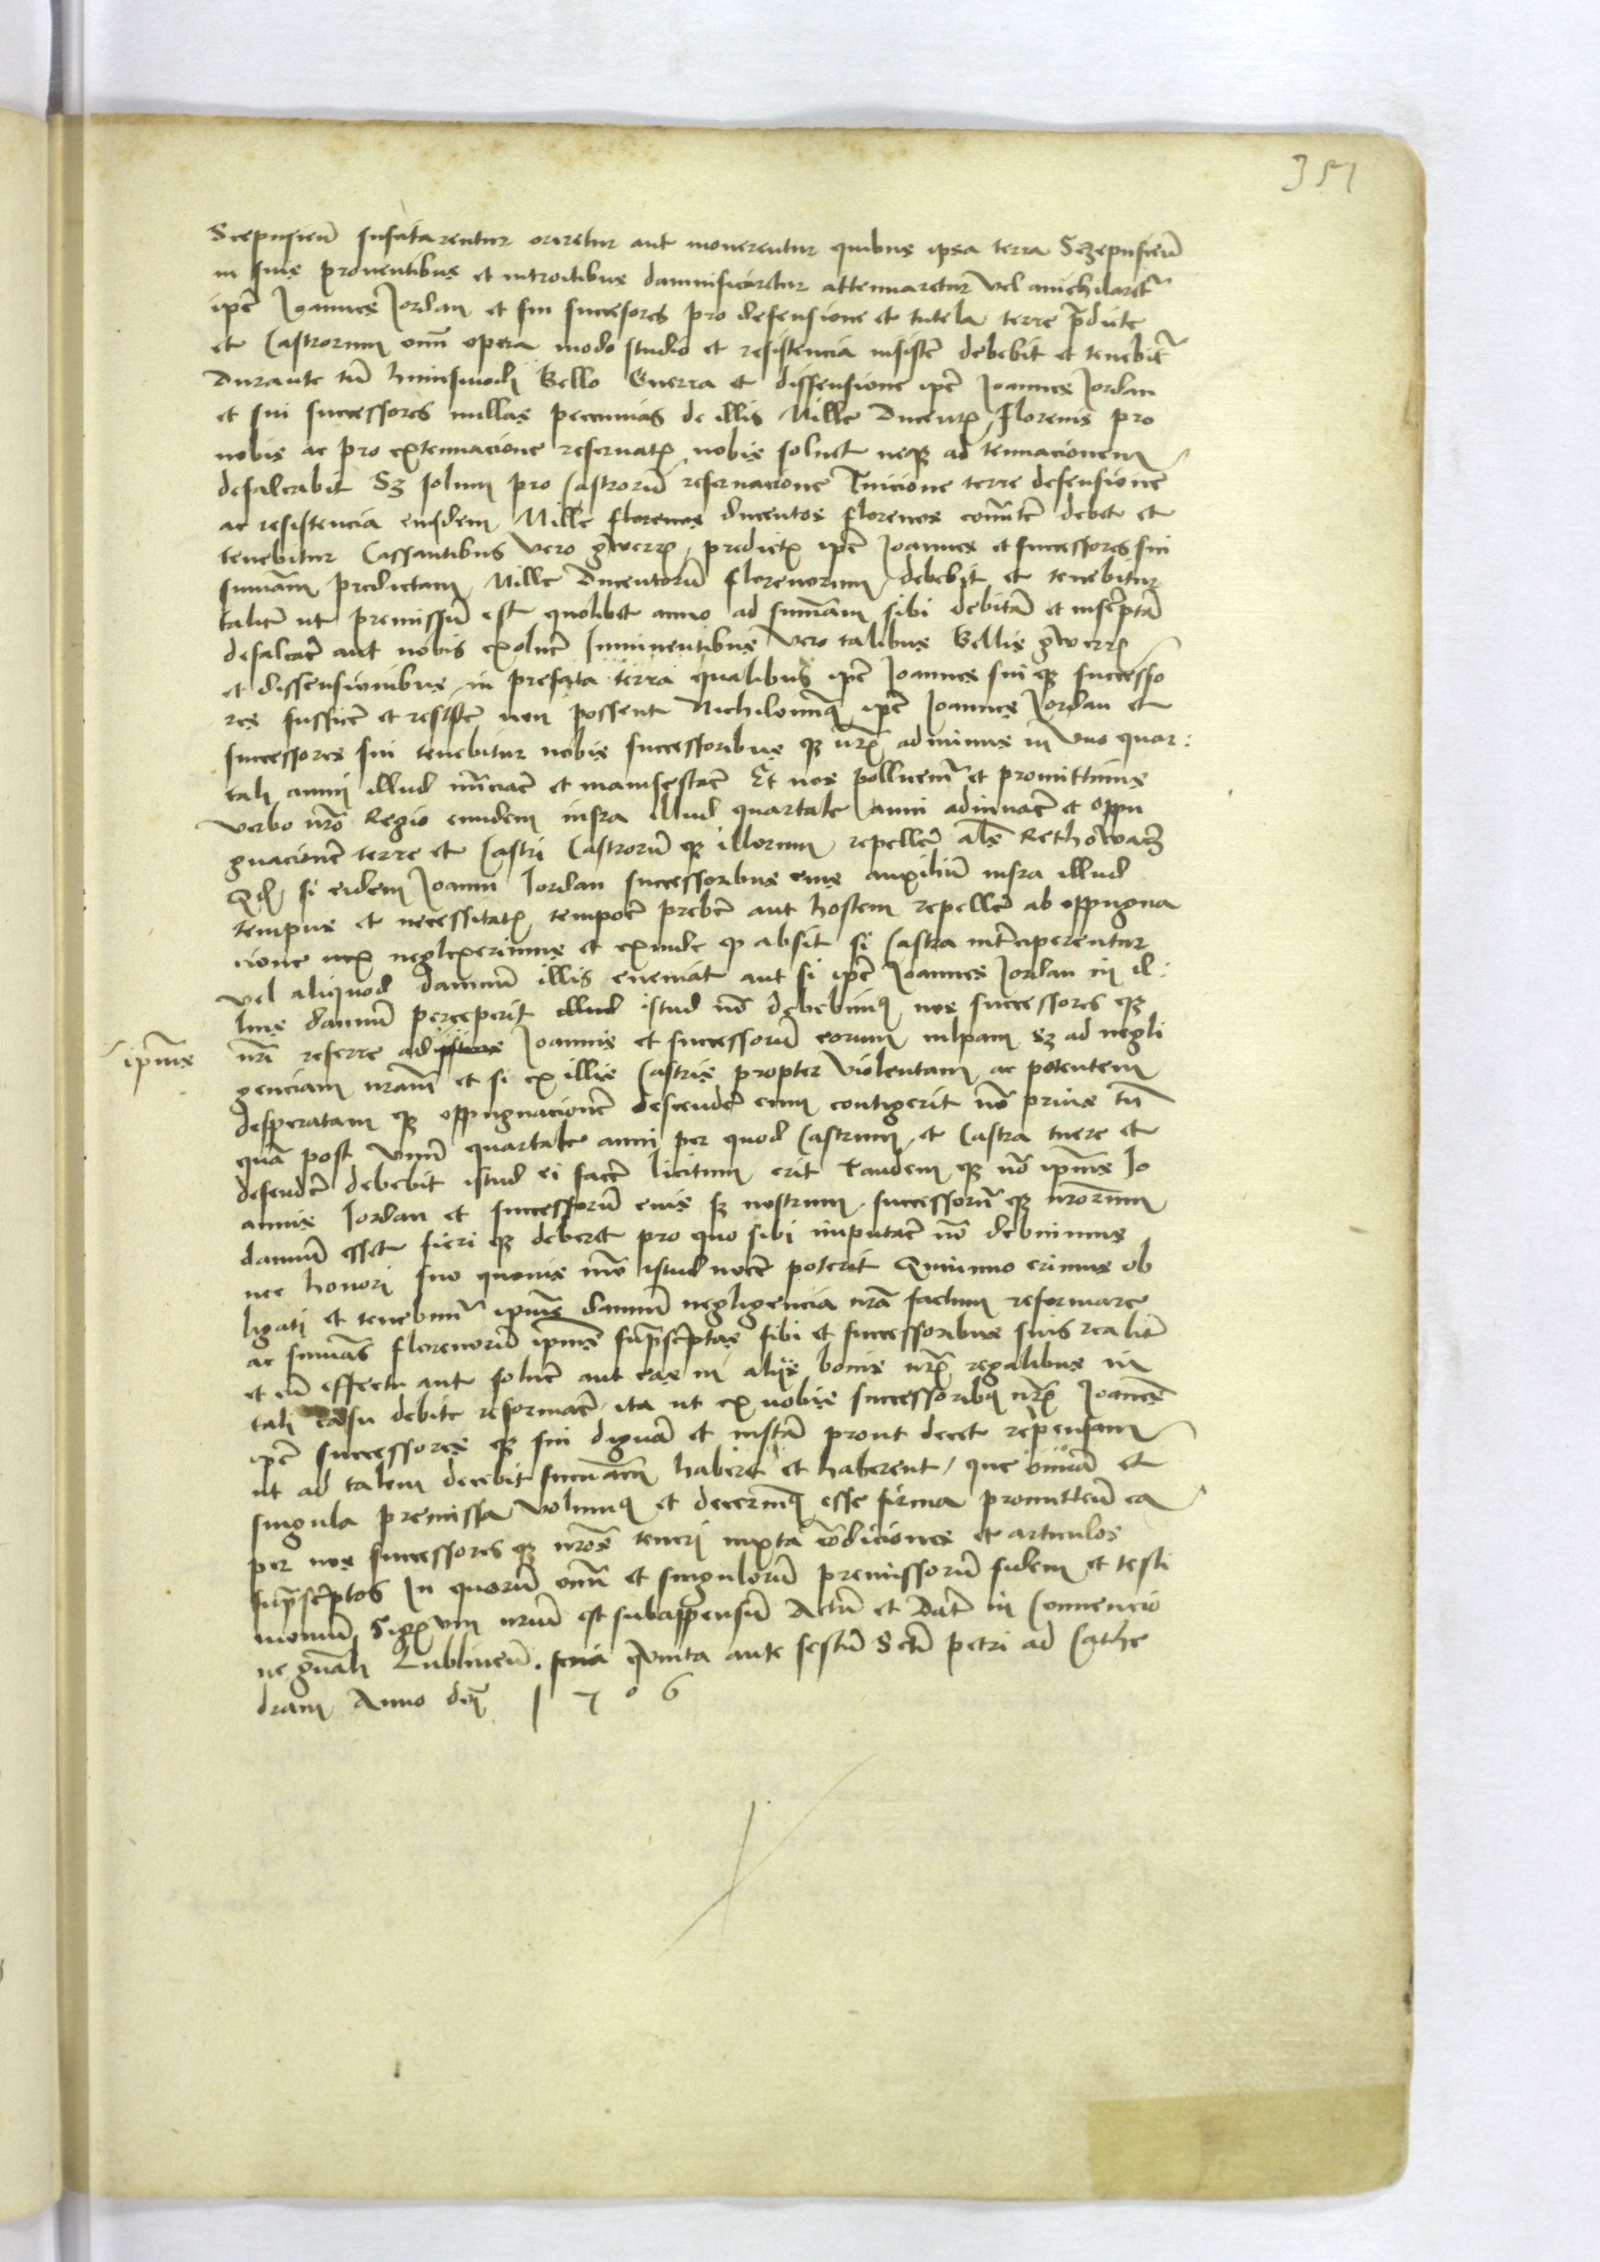 351
Scepusien̄ susitarentur oriretur aut monerentur quibus ipsa terra Sczepusien̄
in suis prouentibus et introitibus damnificaretur attenuaretur vel anichilaret᷑
ip̄e Joannes Jordan et sui successores pro defensione et tutela terre p̄dicte
et Castrorum om̄i opera modo studio et resistencia insistē debebit et tenebit᷑
Durante tn̄ huiusmodi Bello Gwerra et dissensione ip̄e Joannes Jordan
et sui successores nullas peccunias de illis Mille Ducentꝭ Florenis pro
nobis ac pro extenuacione reseruatꝭ nobis soluet neqꝫ ad tenuacionem
defalcabit Sꝫ solum pro Castrorū reseruacione Tuicione terre defensione
ac resistencia eiusdem Mille florenos ducentos florenos conūtē debet et
tenebitur Cassantibus vero gwerrꝭ predictꝭ ip̄e Joannes et successores sui
sum̄am predictam Mille Ducentorū florenorum debebit et tenebitur
talitē ut premissum est quolibet anno ad sum̄am sibi debitā et inscrīptā
defalcarē aut nobis exoluē Imminentibus vero talibus Bellis gwerrꝭ
et dissensionibus in prefata terra qualibus ip̄e Joannes sui qꝫ successo
res sufficē et resistē non possent Nichilominꝰ ip̄e Joannes Jordan et
successores sui tenebitur nobis successoribus qꝫ nr̄ꝭ ad minus in vno quar:
tali anni illud nūciarē et manifestarē Et nos pollicemr̄ et promittimus
verbo nr̄o Regio eundem infra illud quartale anni adiuuarē et oppu
gnacionē terre et Castri Castrorū qꝫ illorum repellerē al̄s Rethowacz
Qđ si eidem Joanni Jordan successoribus eius auxiliū infra illud
tempus et necessitatꝭ tempoē prebē aut hostem repellē ab oppugna
cione neglexerimus et exinde qđ absit si Castra intēciperentur
vel aliquod damnū illis eueniat aut si ip̄e Joannes Jordan in il:
lius damnū perceperit illud istud nō debebimꝰ nos successores qꝫ
ip̄ius
nr̄i referre ad Joannis et successorū eorum culpam Sꝫ ad negli
genciam nr̄am et si ex illis Castris propter violentam ac potentem
desperatam qꝫ oppugnacionē descendē eum contigerit nō prius tn̄
quā post vnū quartale anni per quod Castrum et Castra tuere et
defendē debebit istud ei facē licitum erit Tandem qꝫ nō ip̄ius Jo
annis Jordan et successorū eius sꝫ nostrum successorū qꝫ nr̄orum
damnū esset fieri qꝫ deberet pro quo sibi imputarē nō debuimus
nec honori suo quouis mō istud nocē poterit Quinimo erimus ob
ligati et tenebimr̄ ip̄ius damnū negligencia nr̄a factum reformare
ac sum̄as florenorū ip̄ius sup̄ascrīptas sibi et successoribus suis realitē
et cū effectu aut soluē aut eas in alijs bonis nr̄ꝭ regalibus in
tali casu debite reformarē ita ut ex nobis successoribꝰ nr̄ꝭ Joannes
ip̄e successores qꝫ sui dignā et iustā prout decet repensam
ut ad talem decebit sum̄am haberet et haberent, que om̄ia et
singula premissa volumꝰ et decernimꝰ esse firma promitten̄ ea
per nos successores qꝫ nr̄os teneri iuxta cōdiciones et articulos
sup̄ascrīptos In quorū om̄i et singulorū premissorū fidem et testi
monium Sigillum nr̄um est subappensū Actū et Datū in Conuencio
ne gn̄ali Lublinen̄ feria Quinta ante festū Scti petri ad Cathe
dram Anno dn̄i 1506